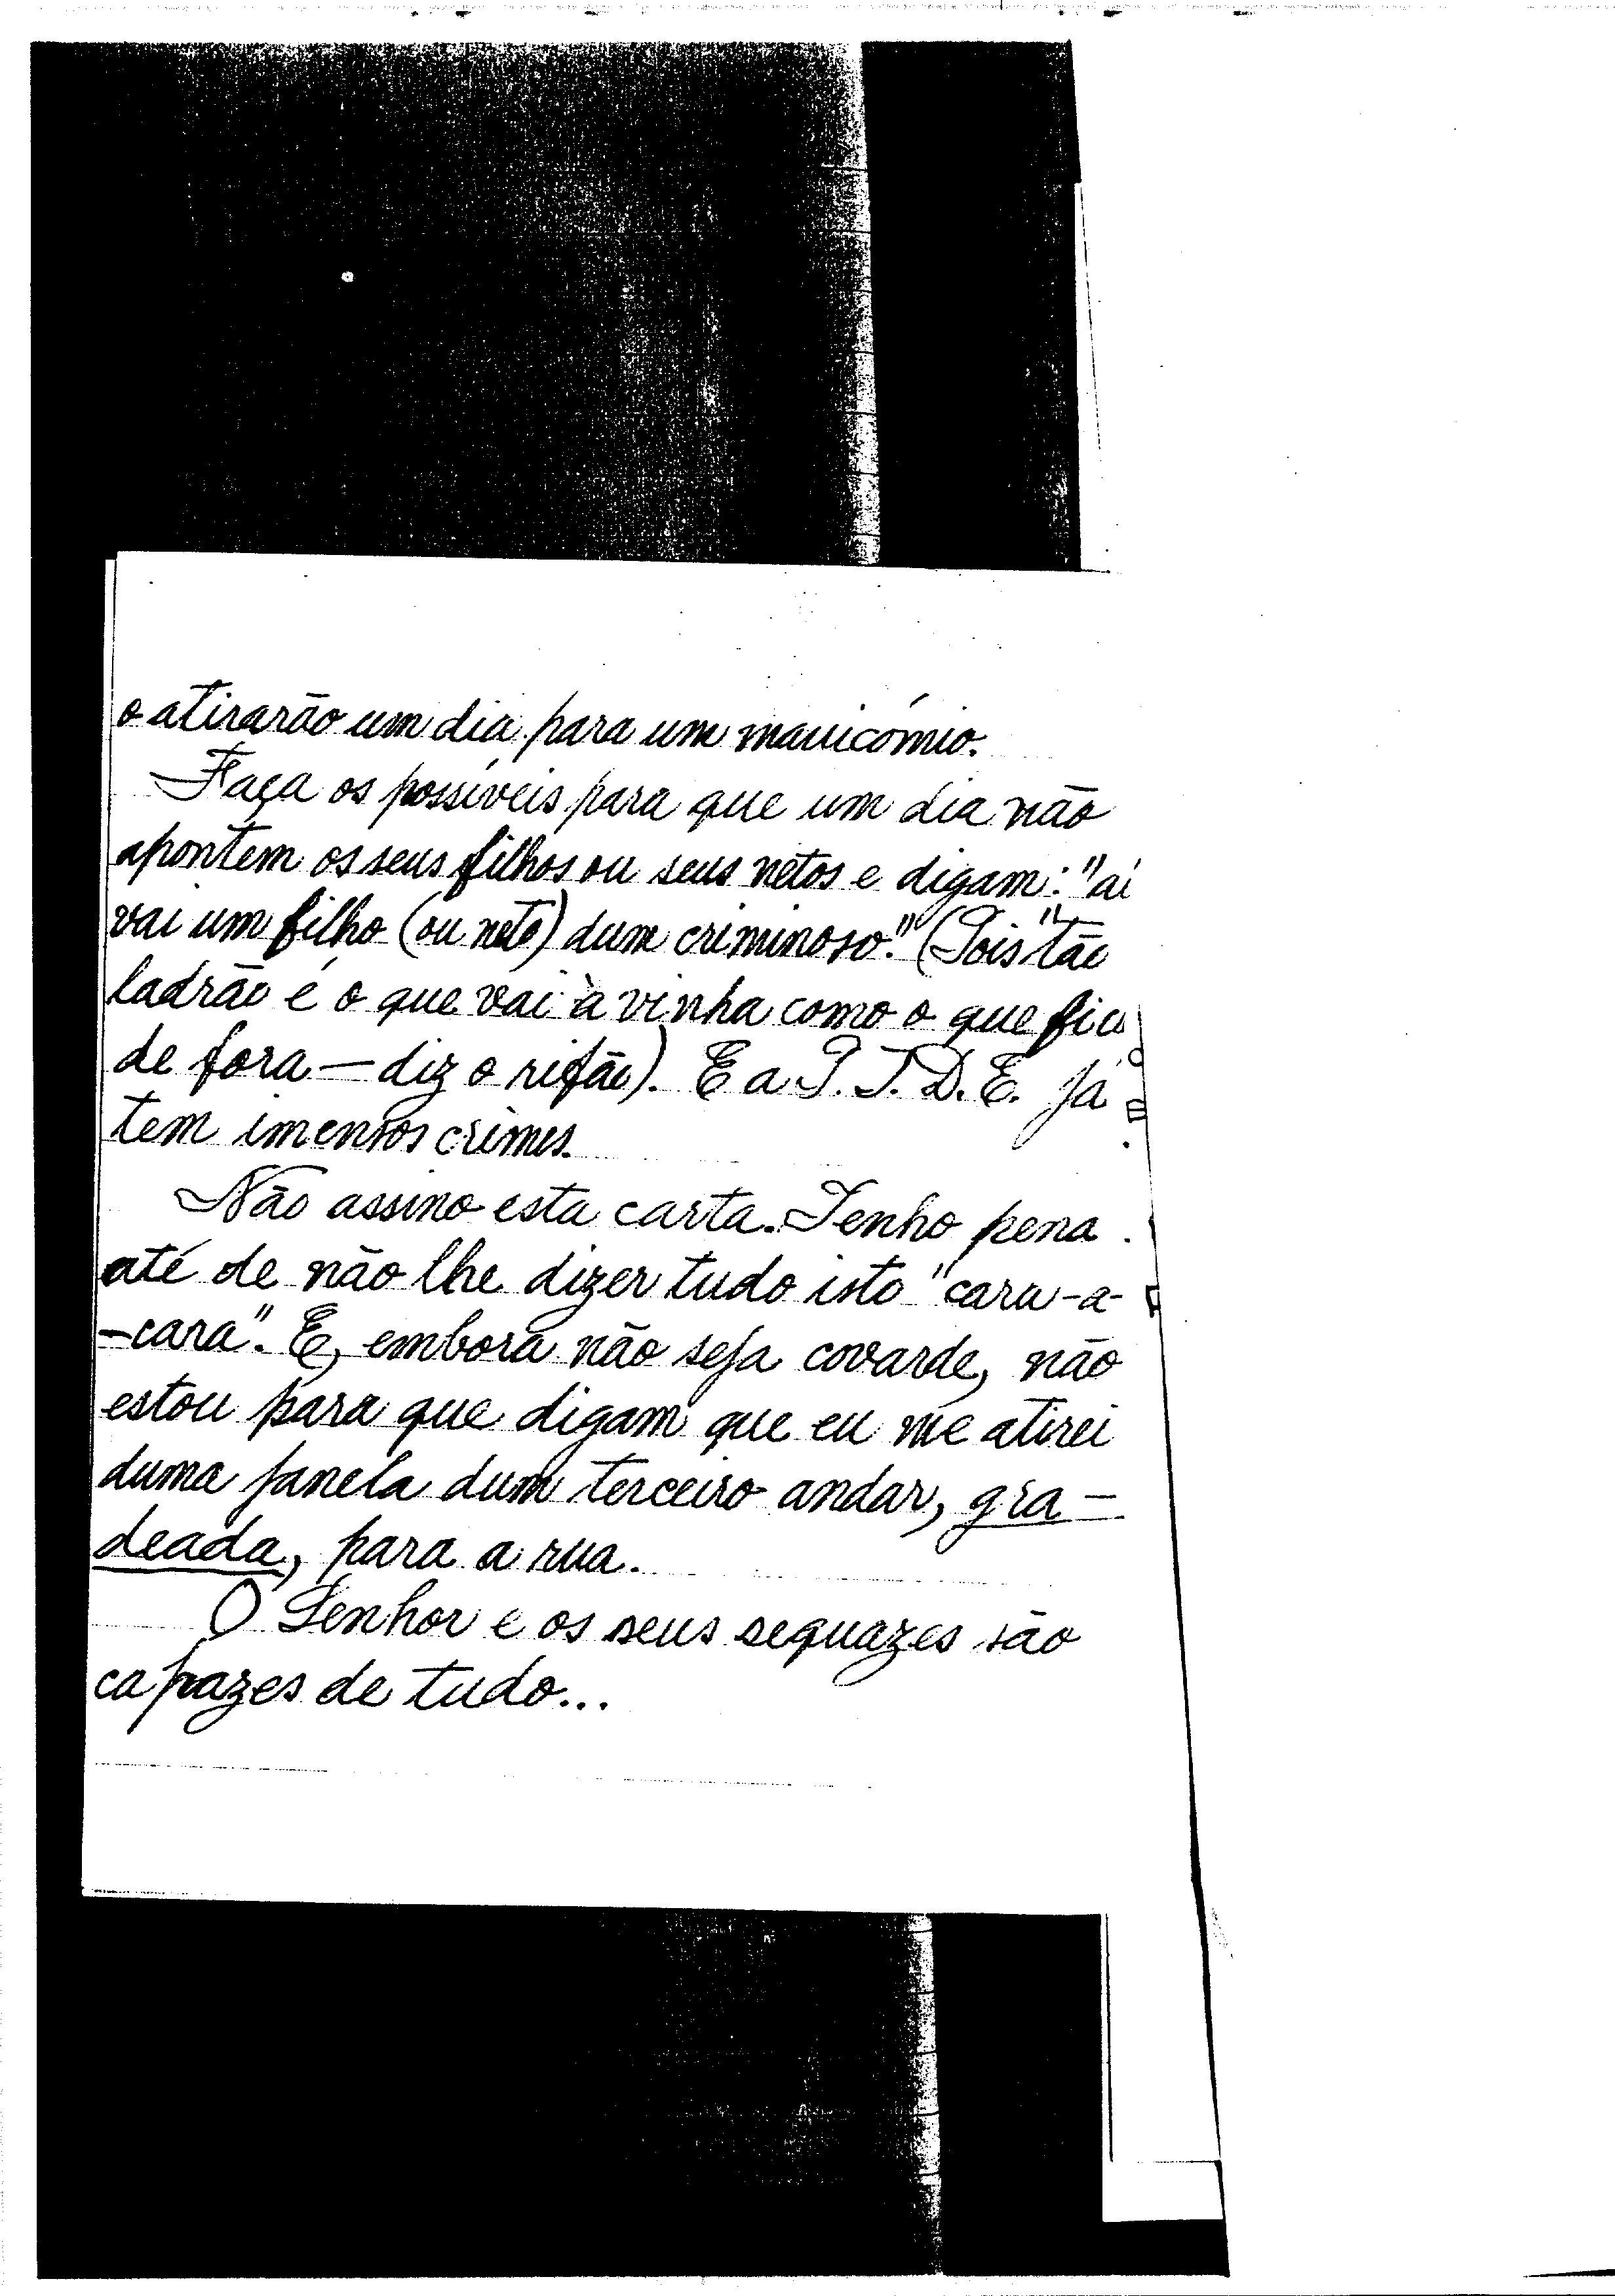 o atirarão um dia para um manicómio.
Faça os possíveis para que um dia não
apontem os seus filhos ou seus netos e digam: "aí
vai um filho (ou neto) dum criminoso". (Pois "tão
ladrão é o que vai à vinha como o que fica
de fora — diz o rifão). E a P.I.D.E. já
tem imensos crimes.
Não assino esta carta. Tenho pena
até de não lhe dizer tudo isto "cara-a-
-cara". E, embora não seja covarde, não
estou para que digam que eu me atirei
duma janela dum terceiro andar, gra-
deada, para a rua.
O Senhor e os seus sequazes são
capazes de tudo...